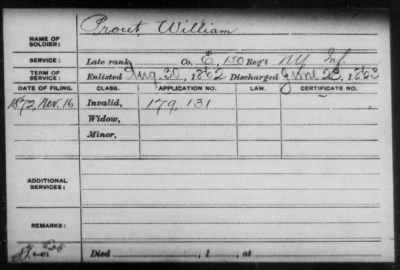 NAME OF SOLDIER: Prout, William
SERVICE: Late rank, Co. E, 150 Reg't NY Inf.
TERM OF SERVICE: Enlisted Aug. 30, 1862 Discharged June 23, 1863
DATE OF FILING. CLASS. APPLICATION NO. LAW. CERTIFICATE NO.
1872, Nov. 16 Invalid, 179,131
Widow,
Minor,
ADDITIONAL SERVICES:
REMARKS:
Died , 1 , at